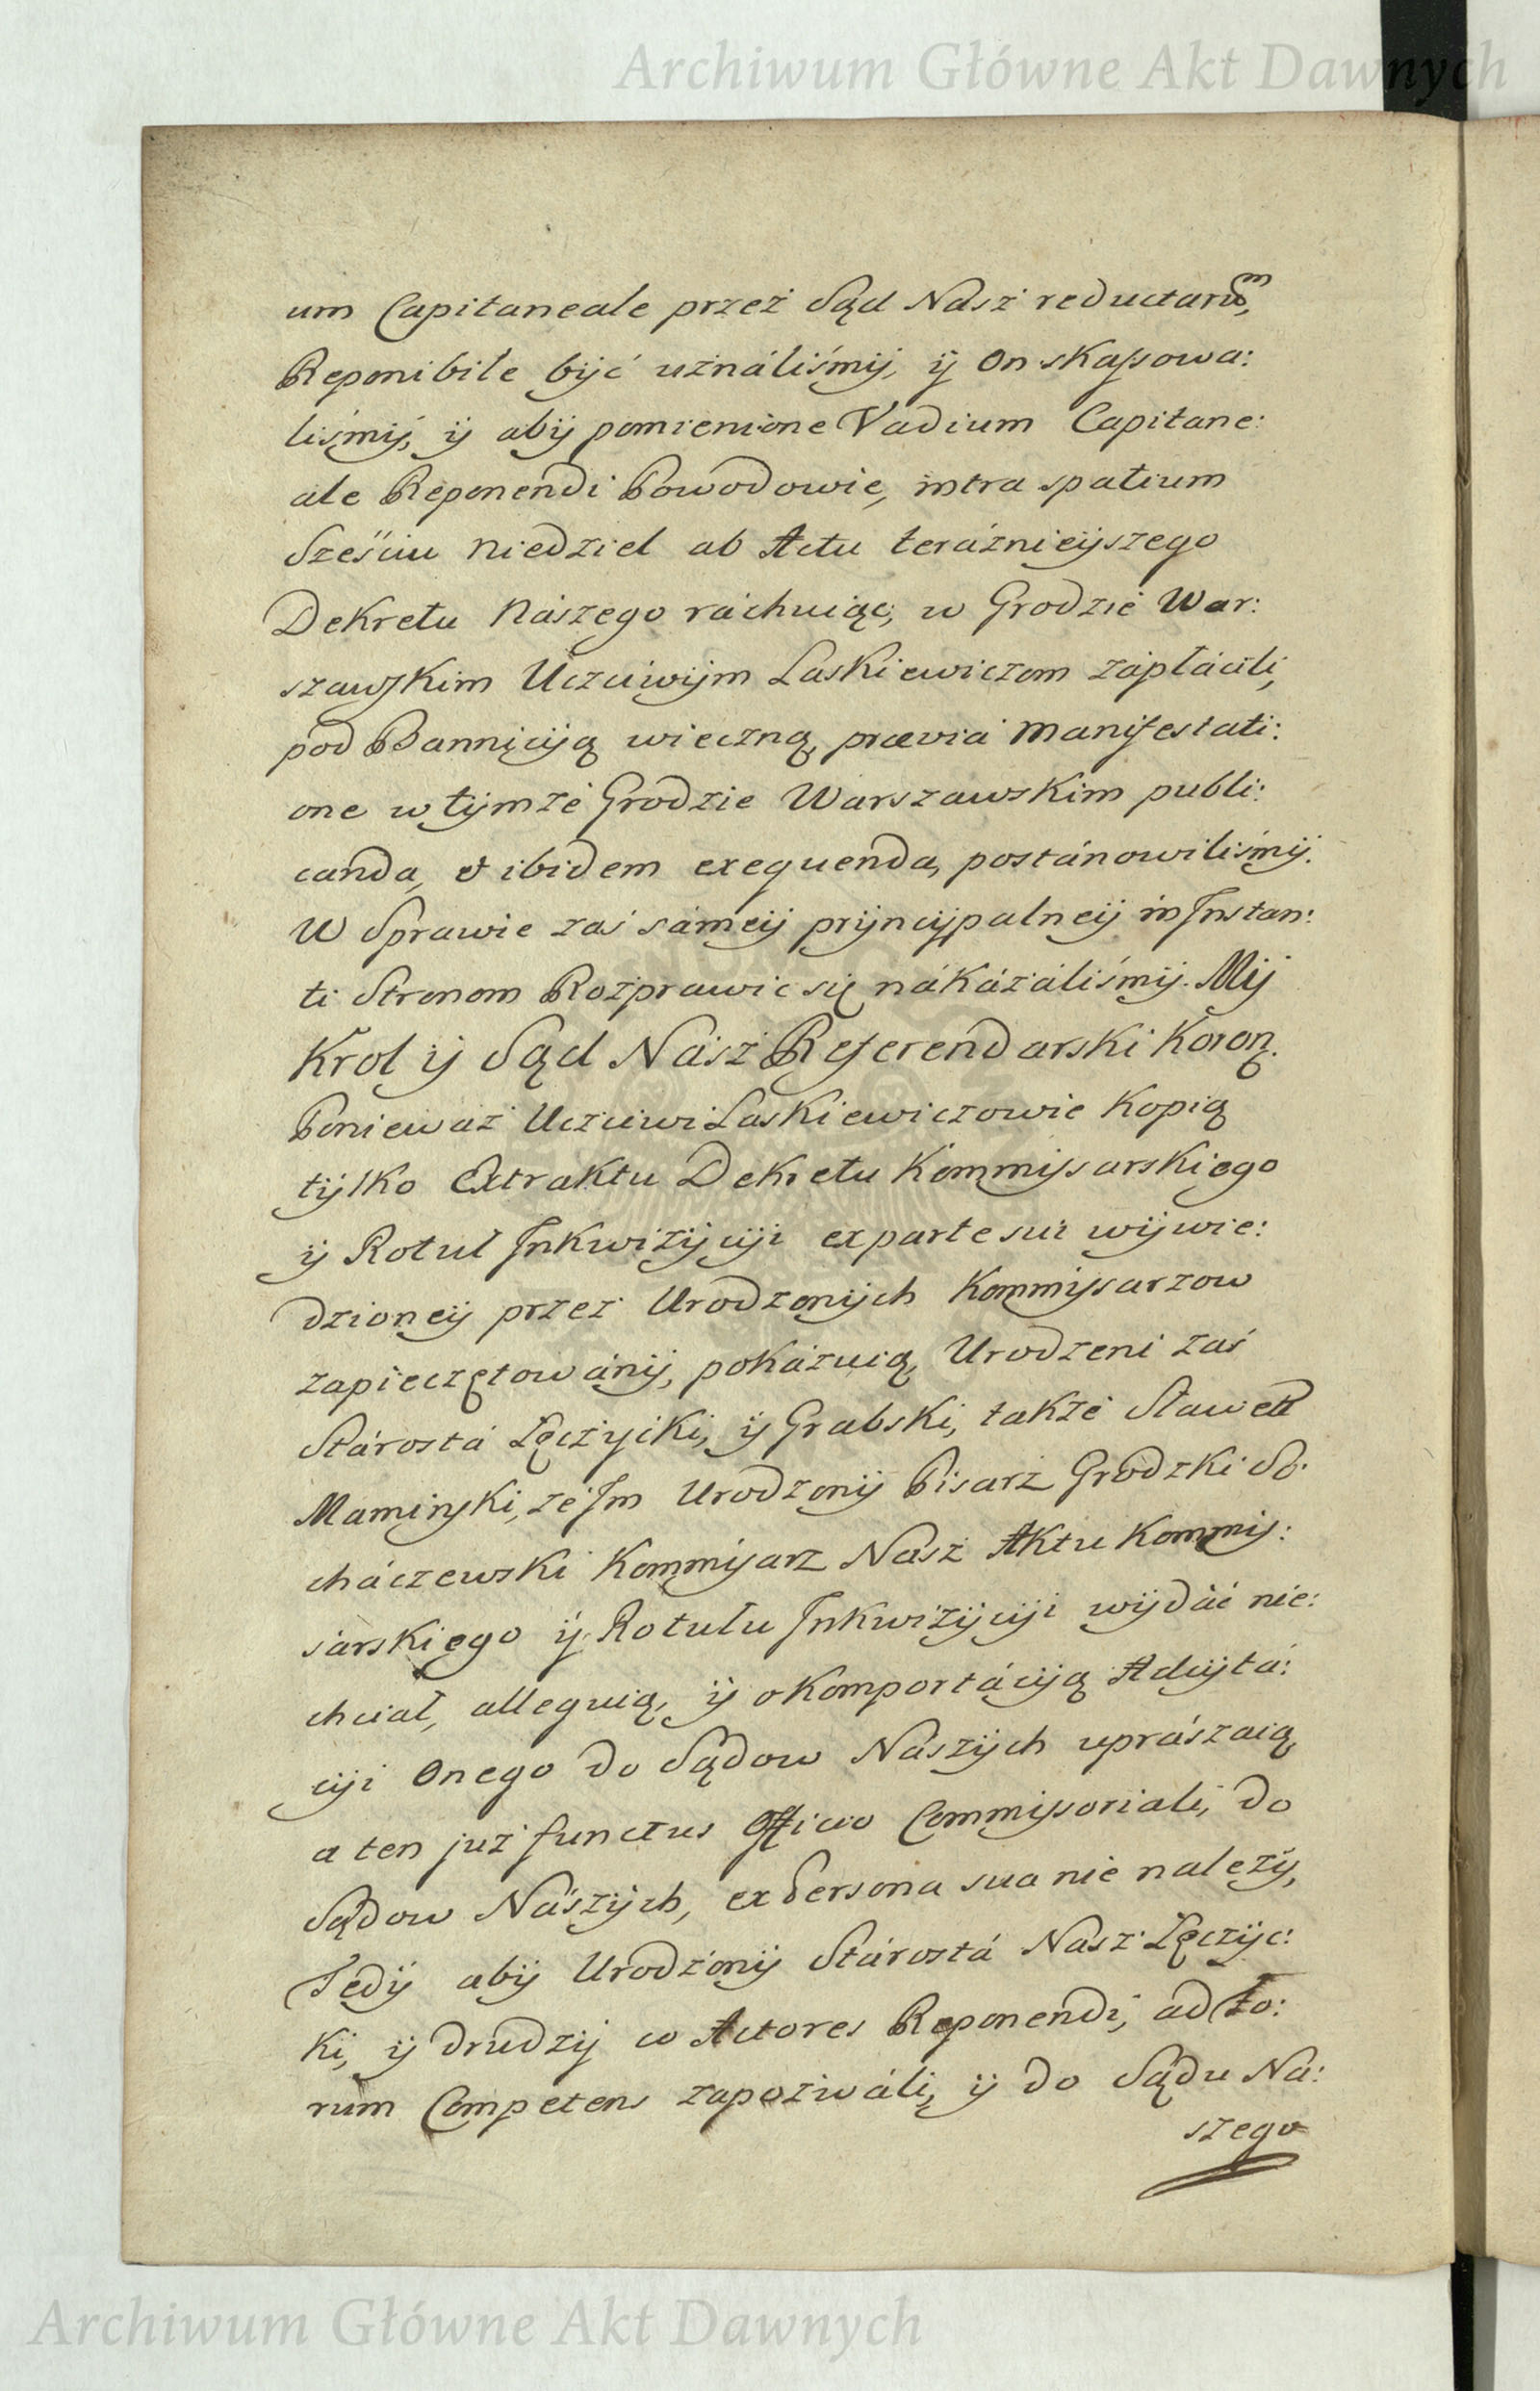 Archiwum Główne Akt Dawnych
um Capitaneale przez Sąd Nasz reductarum,
Reponibile bijć uználiśmij, ij On skassowa:
liśmij, ij abij pomienione Vadium Capitane:
ale Reponendi Powodowie, intra spatium
Sześciu Niedziel ab Actu teráznieijszego
Dekretu Nászego ráchuiąc, w Grodzie War:
szawskim Uczciwijm Laskiewiczom zápłácili,
pod Banniciją wieczną, prævia Manifestati:
one w tijmze Grodzie Warszawskim publi:
canda, et ibidem exequenda, postánowiliśmij.
W Sprawie zaś sámeij prijncijpalneij in Instan:
ti Stronom Rozprawić się nákázáliśmij. Mij
Krol ij Sąd Nász Referendarski Koron.
Ponieważ Uczciwi Laskiewiczowie Kopią
tijlko Extraktu Dekretu Kommissarskiego
ij Rotuł Inkwizijciji ex parte sui wijwie:
dzioneij przez Urodzonijch Kommissarzow
zapieczętowánij, pokázuią, Urodzeni zaś
Stárostá Łęczijcki, ij Grabski, także Sławett
Maminski, ze Im Urodzonij Pisarz Grodzki So:
cháczewski Kommissarz Nász Aktu Kommis:
sarskiego ij Rotułu Inkwizijciji wijdáć nie:
chciał, alleguią, ij o Komportáciją Adcijtá:
ciji Onego do Sądow Nászijch uprászaią,
a ten już functus Officio Commissoriali, do
Sądow Nászijch, ex Persona sua nie należij,
Tedij abij Urodzonij Stárostá Nász Łęczijc:
ki, ij drudzij co Actores Reponendi, ad Fo:
rum Competens zapozwáli, ij do Sądu Ná:
szego
Archiwum Główne Akt Dawnych